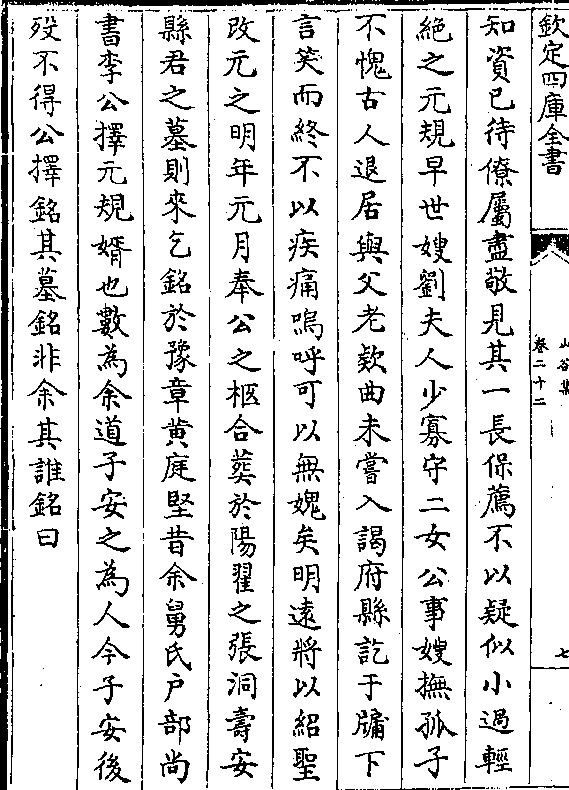 欽定四庫全書
山谷集
卷二十二
七
知資已待僚屬盡敬見其一長保薦不以疑似小過輕
絶之元規早世嫂劉夫人少寡守二女公事嫂撫孤子
不愧古人退居與父老欵曲未嘗入謁府縣訖于牖下
言笑而終不以疾痛嗚呼可以無媿矣明遠將以紹聖
改元之明年元月奉公之柩合葬於陽翟之張洞壽安
縣君之墓則來乞銘於豫章黄庭堅昔余舅氏户部尚
書李公擇元規婿也數為余道子安之為人今子安後
殁不得公擇銘其墓銘非余其誰銘曰